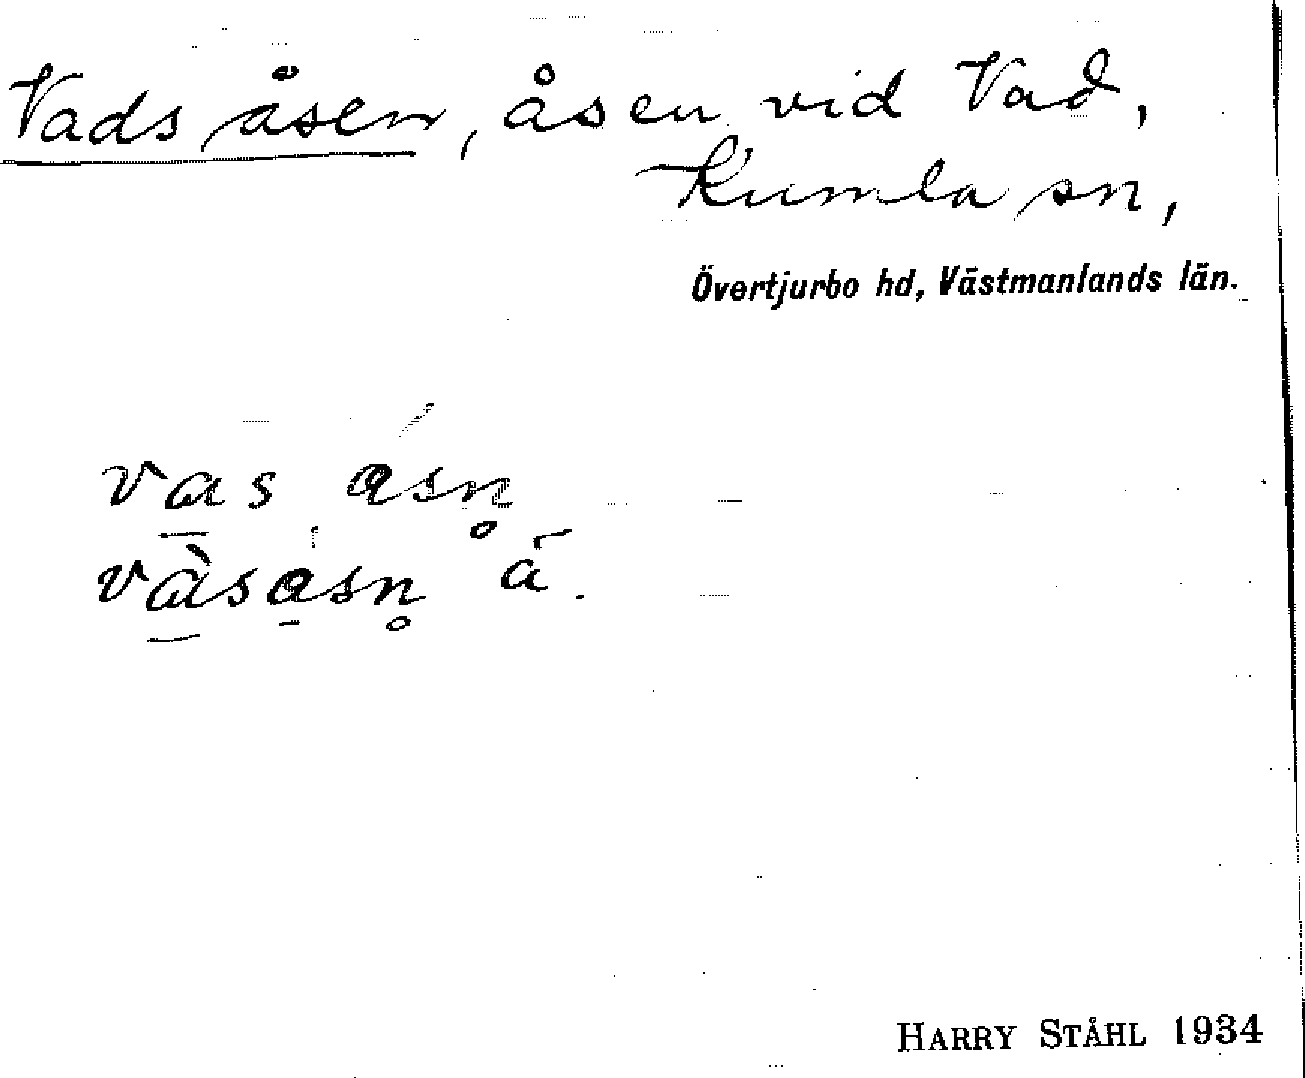 Vads åsen, åsen vid Vad,
Kumla sn,
Övertjurbo hd, Västmanlands län.
vas åsn̥
vàsåsn̥ ā.
HARRY STÅHL 1934